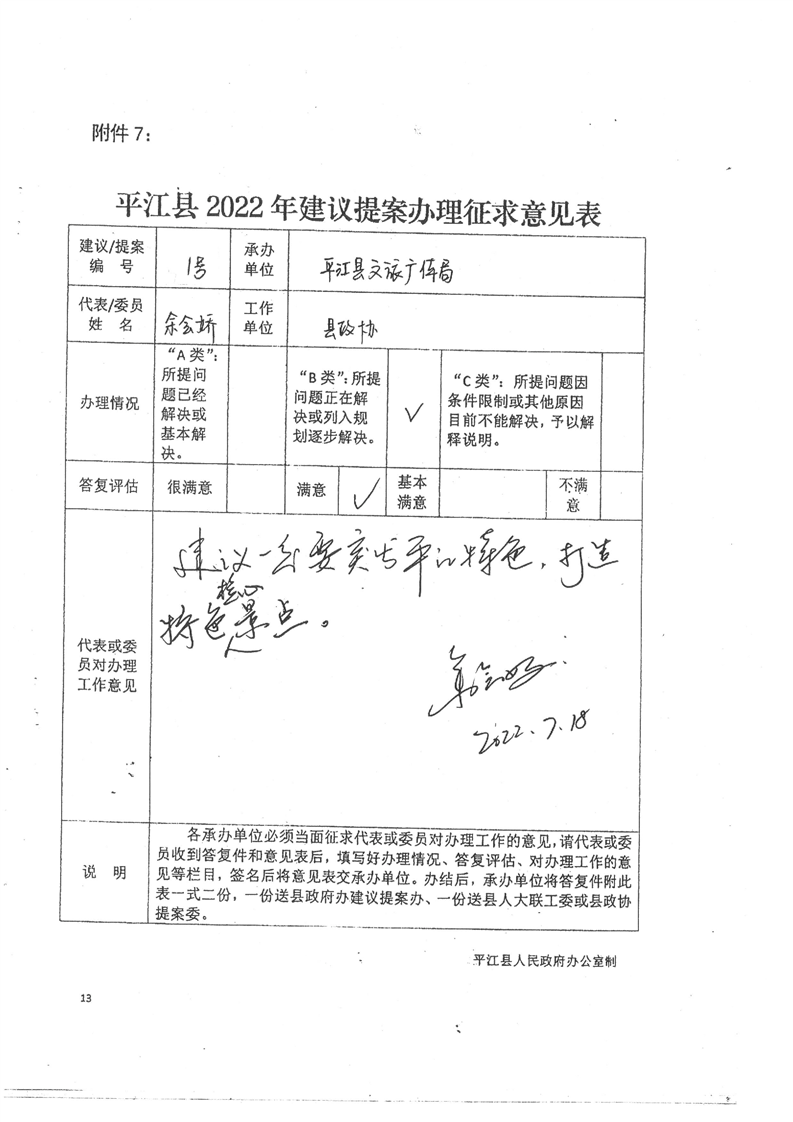 附件 7：
平江县 2022 年建议提案办理征求意见表
建议/提案
编 号
1号
承办
单位
平江县文旅广体局
代表/委员
姓 名
余会娇
工作
单位
县政协
办理情况
“A 类”：
所提问
题已经
解决或
基本解
决。
“B 类”：所提
问题正在解
决或列入规
划逐步解决。
✓
“C 类”：所提问题因
条件限制或其他原因
目前不能解决，予以解
释说明。
答复评估
很满意
满意
✓
基本
满意
不满
意
代表或委
员对办理
工作意见
建议一定要突出平江特色，打造
核心
特色景点。
2022.7.18
说 明
各承办单位必须当面征求代表或委员对办理工作的意见，请代表或委
员收到答复件和意见表后，填写好办理情况、答复评估、对办理工作的意
见等栏目，签名后将意见表交承办单位。办结后，承办单位将答复件附此
表一式二份，一份送县政府办建议提案办、一份送县人大联工委或县政协
提案委。
平江县人民政府办公室制
13